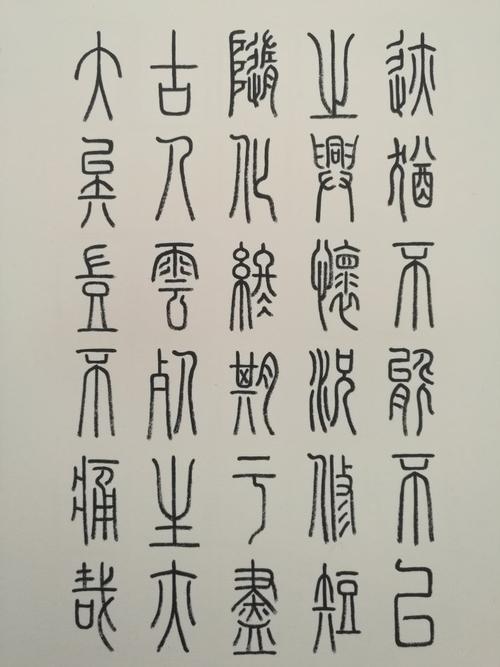 迹猶不能不以
之興懷況修短
隨化終期于盡
古人雲死生亦
大矣豈不痛哉